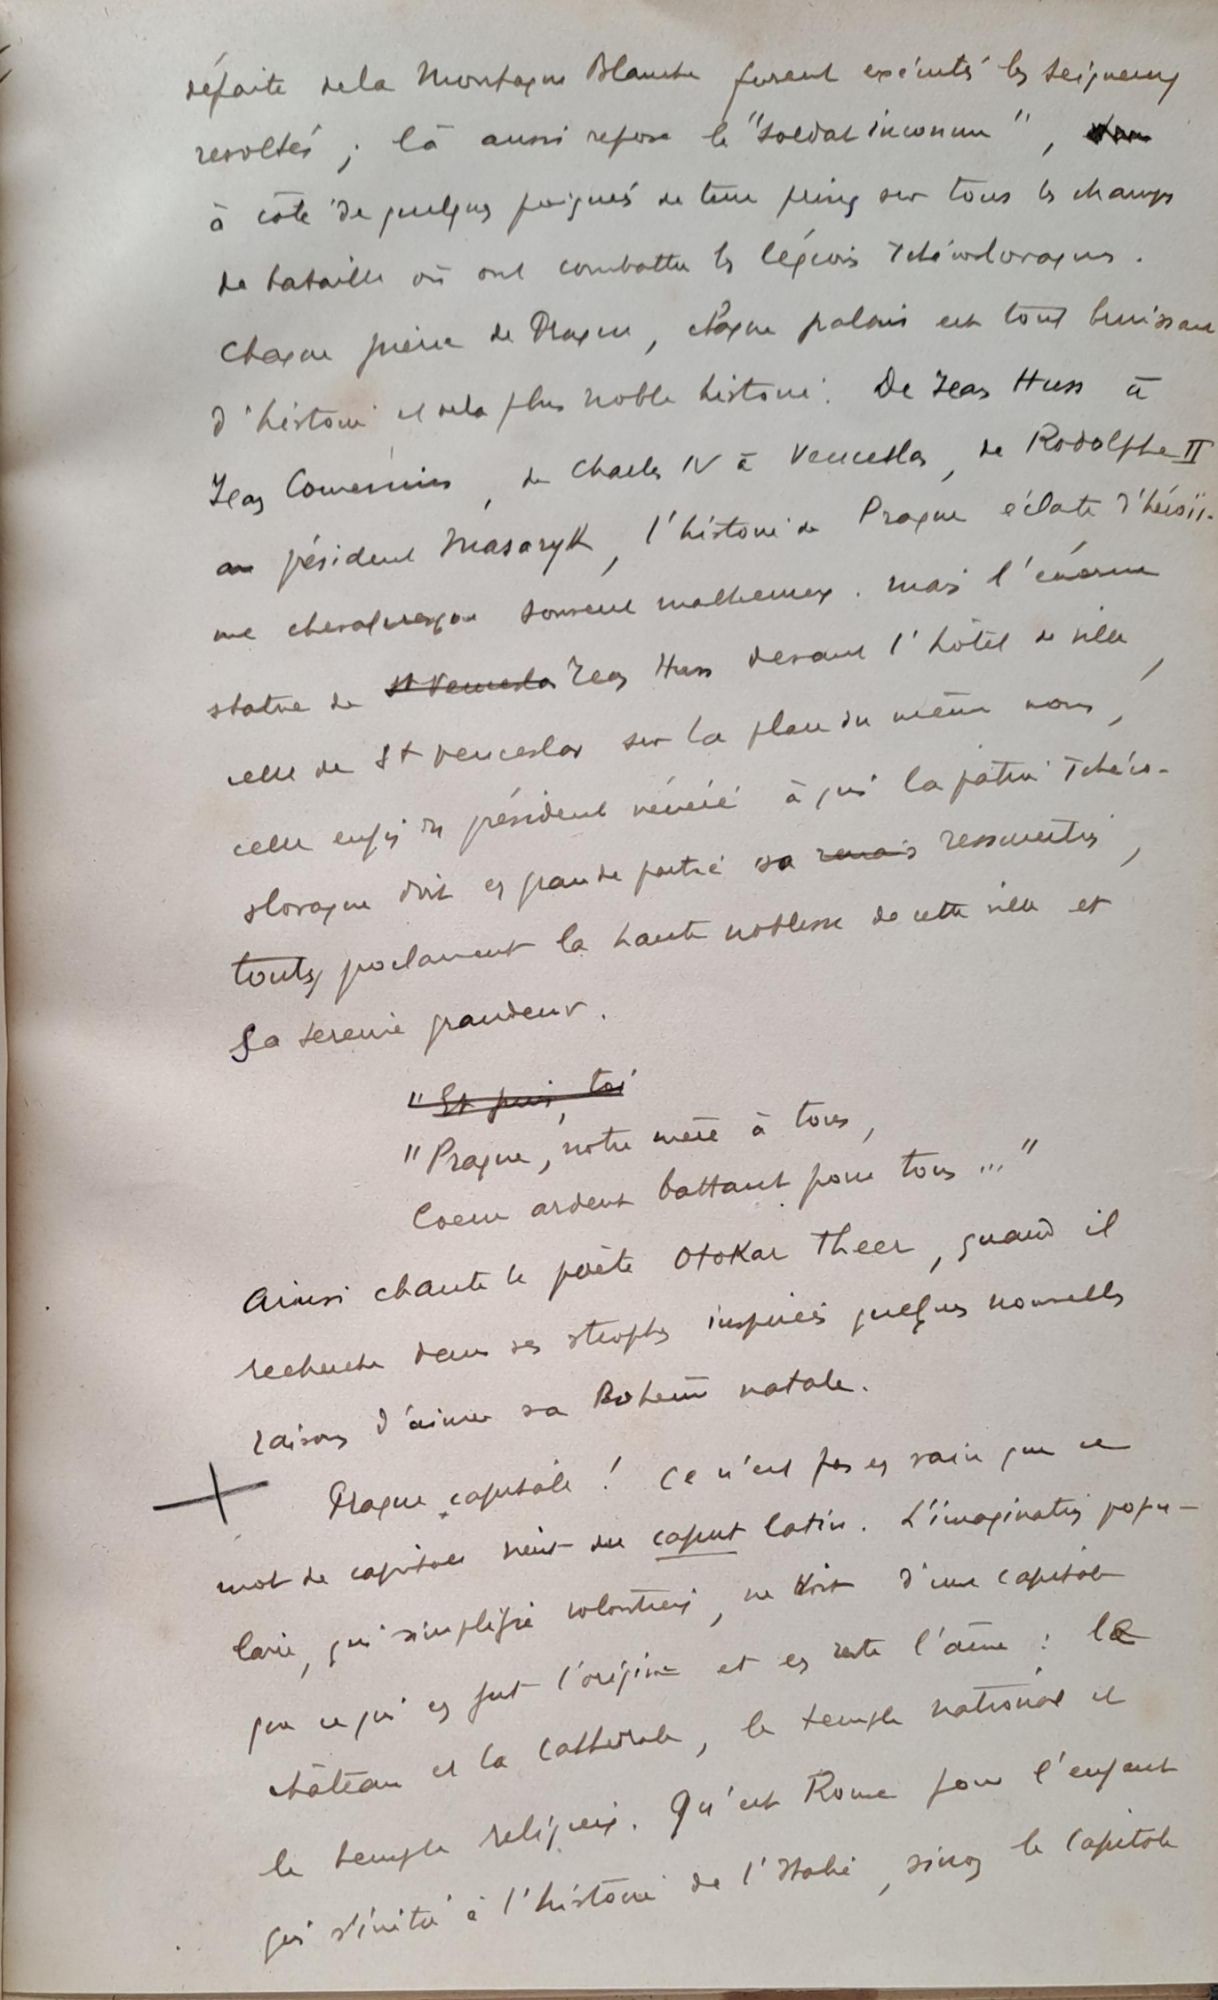 défaite de la Montagne Blanche furent exécutés les seigneurs
révoltés ; là aussi repose le "soldat inconnu",
à côté de quelques poignés de terre prises sur tous les champs
de bataille où ont combattu les légions Tchécoslovaques.
Chaque pierre de Prague, chaque palais est tout bruissant
d'histoire et de la plus noble histoire. De Jean Huss à
Jean Comenius, de Charles IV à Venceslas, de Rodolphe II
au président Masaryk, l'histoire de Prague éclate d'héroïs-
me chevaleresque souvent malheureux. Mais l'énorme
statue de St Venceslas Jean Huss devant l'hôtel de ville,
celle de St Venceslas sur la place du même nom,
celle enfin du président vénéré à qui la patrie Tchéco-
slovaque doit en grande partie sa renais resurrection,
toutes proclament la haute noblesse de cette ville et
sa sereine grandeur.
"Et puis, toi
"Prague, notre mère à tous,
Coeur ardent battant pour tous ..."
Ainsi chante le poète Otokar Theer, quand il
recherche dans ses strophes inspirées quelques nouvelles
raisons d'aimer sa Bohême natale.
Prague capitale ! Ce n'est pas en vain que ce
mot de capitale vient du caput latin. L'imagination popu-
laire, qui simplifie volontiers, ne voit d'une capitale
que ce qui en fut l'origine et en reste l'âme : le
château et la cathédrale, le temple national et
le temple religieux. Qu'est Rome pour l'enfant
qui s'initie à l'histoire de l'Italie, sinon le Capitole